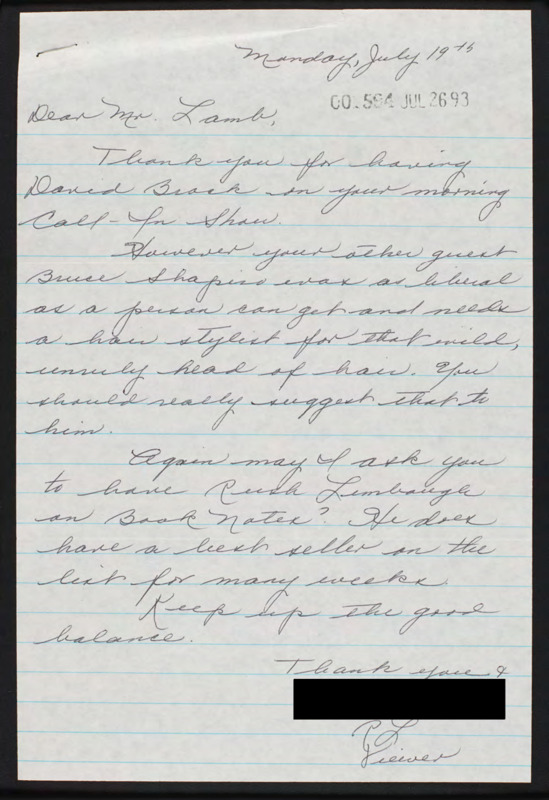 Monday, July 19th
CO. 594 JUL 26 93
Dear Mr. Lamb,
Thank you for having
David Brock on your morning
Call-In Show.
However your other guest
Bruce Shapiro was as liberal
as a person can get and needs
a hair stylist for that wild,
unruly head of hair. You
should really suggest that to
him.
Again may I ask you
to have Rush Limbaugh
on Book Notes? He does
have a best seller on the
list for many weeks.
Keep up the good
balance.
Thank you &
Viewer